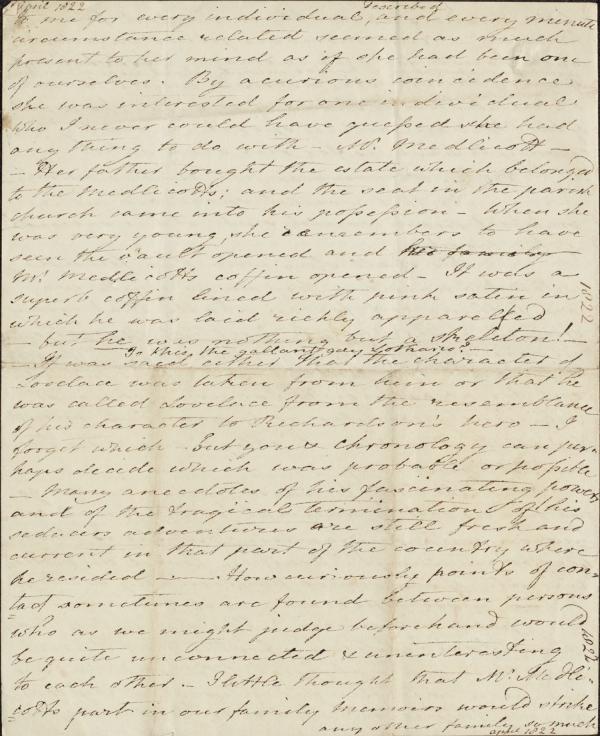 April 1822
described
to me for every individual, and every minute
circumstance related seemed as much
present to her mind as if she had been one
of ourselves. By a curious coincidence
she was interested for one individual
who I never could have guessed she had
anything to do with – Mr. Medlicott –
– Her father bought the estate which belonged
to the Medlicotts; and the seat in the parish
church came into his possession – When she
was very young, she remembers to have
seen the vault opened and his family
Mr. Medlicotts coffin opened – It was a
superb coffin lined with pink satin in
which he was laid richly apparelled
– but he was nothing but a skeleton! –
Is this the gallant gay Lothario? –
– It was said either that the character of
Lovelace was taken from him or that he
was called Lovelace from the resemblance
of his character to Richardson's hero – I
forget which – But your chronology can per-
haps decide which was probable or possible
– Many anecdotes of his fascinating powers
and of the tragical termination of his
seducers adventures are still fresh and
current in that part of the country where
he resided —— How curiously points of con-
tact sometimes are found between persons
who as we might judge beforehand would
be quite unconnected & uninteresting
to each other. – I little thought that Mr. Medli-
cotts part in our family Memoirs would strike
any other family so much
april 1822
1822
1822